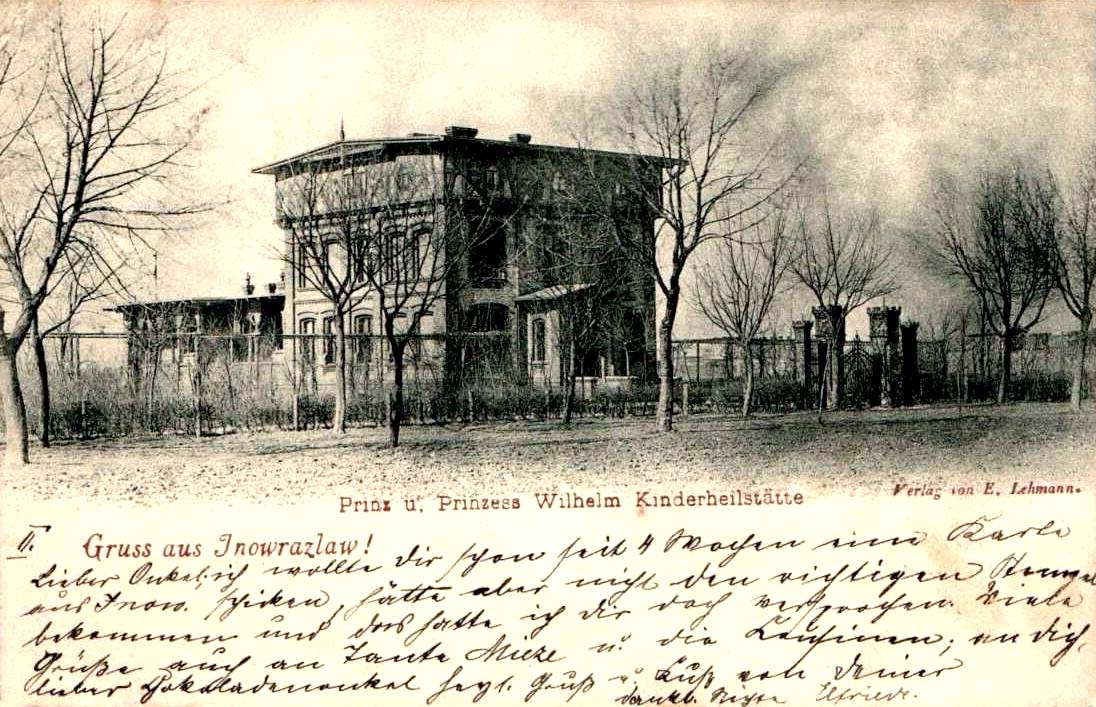 Prinz u. Prinzess Wilhelm Kinderheilstätte
Verlag von E. Lehmann.
II.
Gruss aus Inowrazlaw!
Lieber Onkel, ich wollte dir schon seit 4 Wochen eine Karte
aus Inow. schicken, hätte aber nicht den richtigen Stempel
bekommen und das hatte ich dir doch versprochen. Viele
Grüße auch an Tante Mieze u. die Cousinen; an dich,
lieber Schokoladenonkel herzl. Gruß u. Kuß von deiner
dankb. Nichte Elfriede.